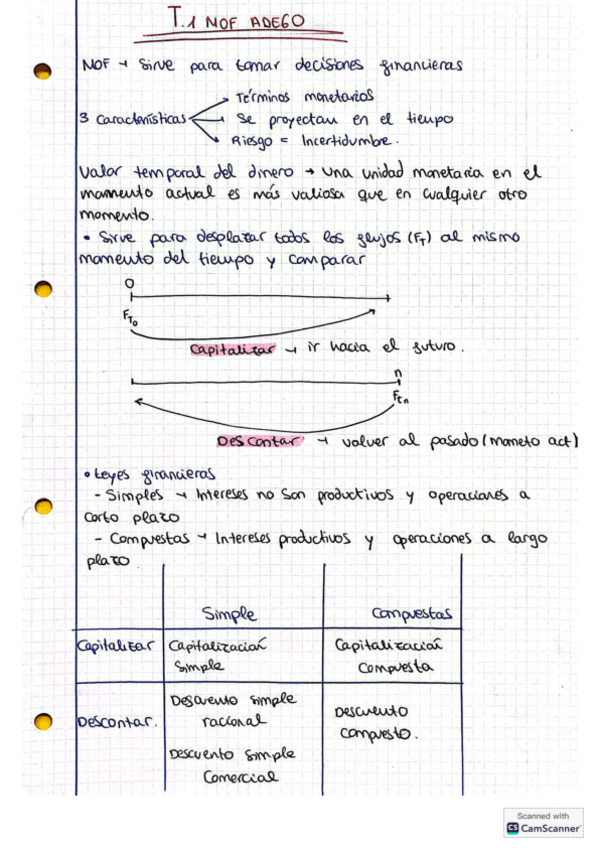 T.1 NOF ADEGO
NOF → Sirve para tomar decisiones financieras
3 características
→ Términos monetarios
→ Se proyectan en el tiempo
→ Riesgo = Incertidumbre.
Valor temporal del dinero → Una unidad monetaria en el
momento actual es más valiosa que en cualquier otro
momento.
• Sirve para desplazar todos los flujos (FT) al mismo
momento del tiempo y comparar
0
FT0
Capitalizar → ir hacia el futuro.
n
Ftn
Descontar → volver al pasado (momento act)
• Leyes financieras
- Simples → Intereses no son productivos y operaciones a
corto plazo
- Compuestas → Intereses productivos y operaciones a largo
plazo.
Simple Compuestas
Capitalizar Capitalización Capitalización
Simple Compuesta
Descontar. Descuento simple Descuento
racional compuesto.
Descuento simple
Comercial
Scanned with
CS CamScanner